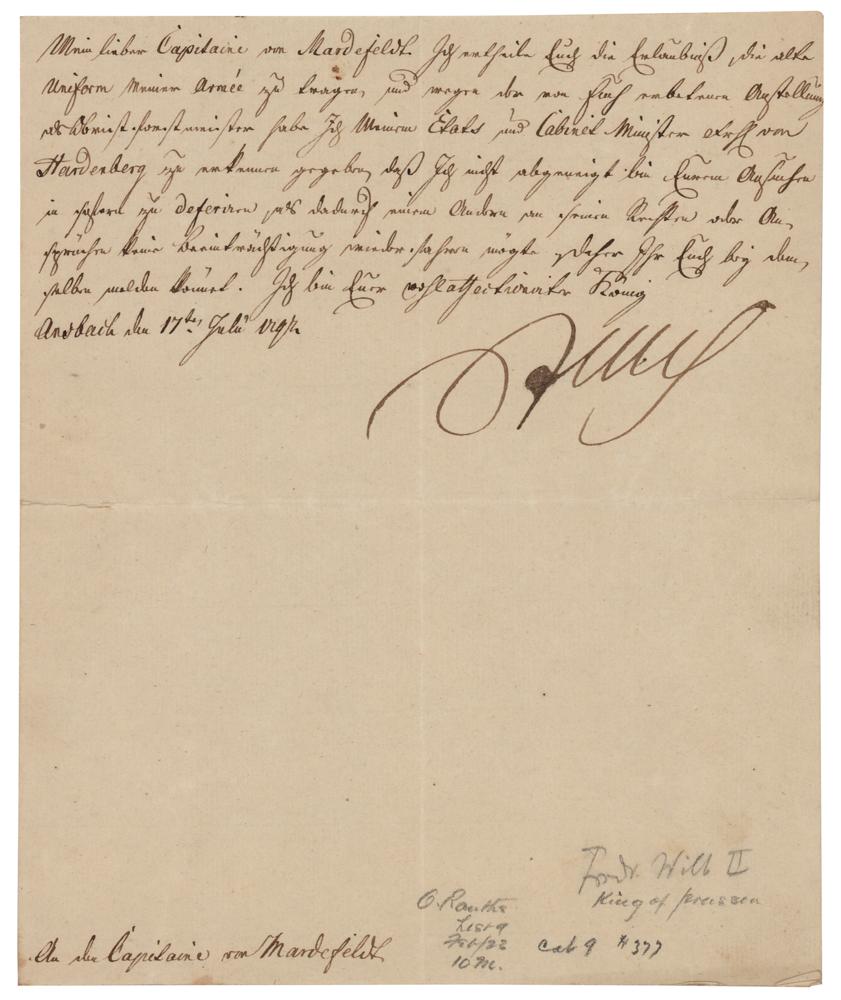 Mein lieber Capitaine von Mardefeldt. Ich ertheile Euch die Erlaubniß, die alte
Uniform Meiner Armée zu tragen, und wegen der von Euch erbetenen Anstellung
als Obrist-Forstmeister habe Ich Meinem Etats und Cabinet Minister Frh von
Hardenberg zu erkennen gegeben, daß Ich nicht abgeneigt bin Eurem Ansuchen
in sofern zu deferiren, als dadurch einem Andern an seinen Rechten oder An-
sprüchen keine Beeinträchtigung wiederfahren mögte, Daher Ihr Euch bey dem-
selben melden könnet. Ich bin Euer wohlaffectionirter König
Ansbach den 17ten July 1792
An den Capitaine von Mardefeldt
Fredr. Will II
King of Preussen
List 9
Feb/22
10 M.
cat 9 # 377